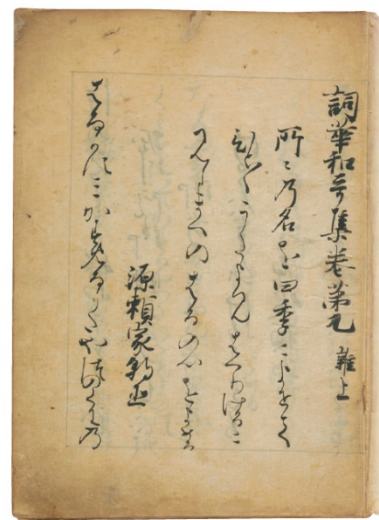 詞華和哥集巻第九 雜上
所々乃名を四季によせて
ひと〳〵うたよみはへりけるに
みしまえのはるの心をよめる
源頼家朝臣
はるかすミかすめるかたやつのくに乃